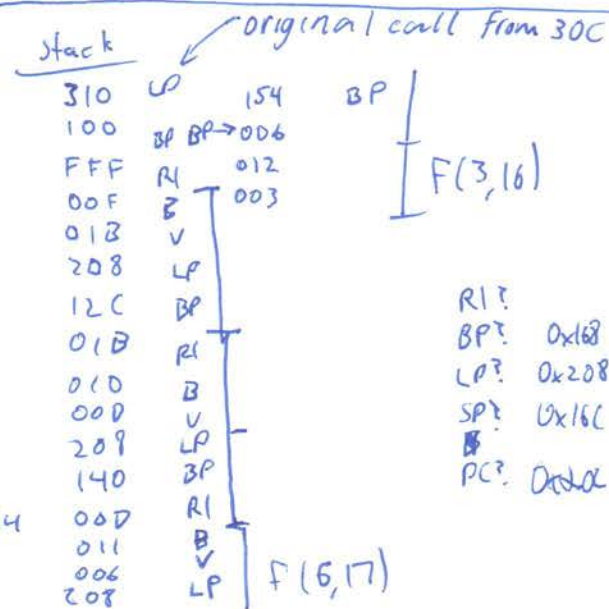 original call from 30C
Stack
310 LP 154 BP
100 BP BP→006
FFF R1 012
00F B 003
F(3,16)
01B V
208 LP
12C BP
01B R1
010 B
00D V
208 LP
140 BP
4 00D R1
011 B
006 V
208 LP
F(6,17)
R1?
BP? 0x168
LP? 0x208
SP? 0x16C
PC?